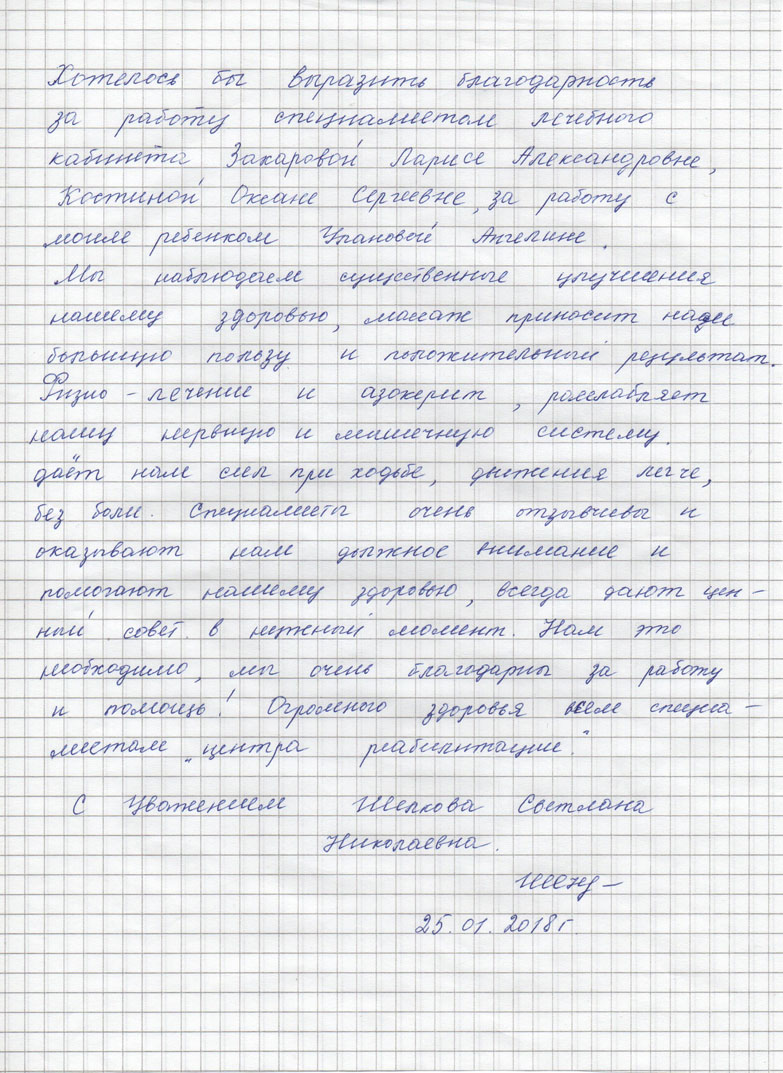 Хотелось бы выразить благодарность
за работу специалистам лечебного
кабинета Захаровой Ларисе Александровне,
Костиной Оксане Сергеевне, за работу с
моим ребенком Улановой Ангелине.
Мы наблюдаем существенные улучшения
нашему здоровью, массаж приносит нам
большую пользу и положительный результат.
Физио - лечение и азокерит, расслабляет
нашу нервную и мышечную систему.
даёт нам сил при ходьбе, движения легче,
без боли. Специалисты очень отзывчивы и
оказывают нам должное внимание и
помогают нашему здоровью, всегда дают цен-
ный совет в нужный момент. Нам это
необходимо, мы очень благодарны за работу
и помощь! Огромного здоровья всем специа-
листам „центра реабилитации."
С Уважением Светлана
Николаевна.
25.01.2018г.